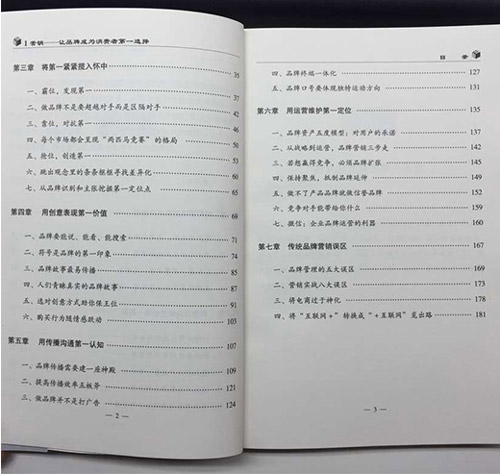 1营销——让品牌成为消费者第一选择
第三章 将第一紧紧揽入怀中 35
一、霸位，发现第一 37
二、做品牌不是要超越对手而是区隔对手
三、靠位，对抗第一
四、每个市场都会呈现“两匹马竞赛”的格局
五、抢位，创造第一
六、跳出观念里的条条框框寻找差异化
七、从品牌识别和主张挖掘第一定位点
第四章 用创意表现第一价值 69
一、品牌要能说、能看、能搜索 71
二、符号是品牌的第一印象 74
三、品牌故事最易传播
四、人们青睐真实的品牌故事 87
五、选对创意方式助你保王位 91
六、购买行为随情感跃动 103
第五章 用传播沟通第一认知 107
一、品牌传播需要建一座神殿 109
二、提高传播效率五板斧 121
三、做品牌并不是打广告 124
— 2 —
目 录
四、品牌终端一体化 127
五、品牌口号要体现独特运动方向 131
第六章 用运营维护第一定位 135
一、品牌资产五度模型：对用户的承诺 137
二、从战略到运营，品牌营销三步走 141
三、若想赢得竞争，必须品牌扩张 145
四、保持聚焦，抵制品牌延伸 149
五、做不了产品品牌就做信誉品牌
六、竞争对手能带给你什么
七、微信：企业品牌运营的利器 160
第七章 传统品牌营销误区 167
一、品牌管理的五大误区 169
二、营销实战八大误区 173
三、将电商过于神化 178
四、将“互联网＋”转换成“＋互联网”觅出路 181
— 3 —